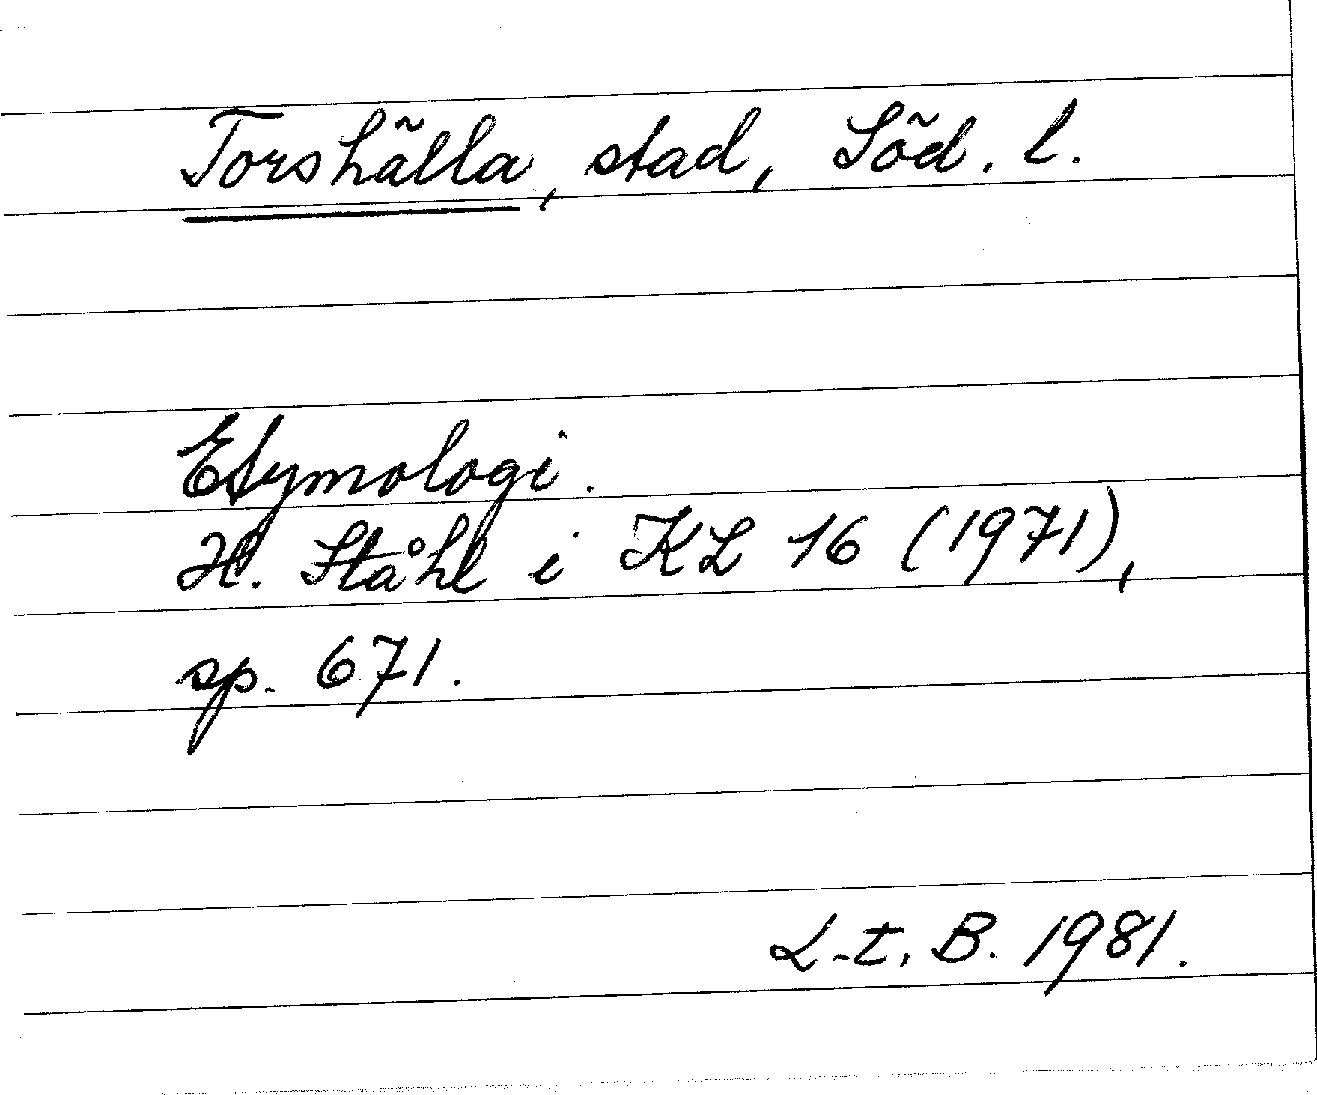 Torshälla, stad, Söd. l.
Etymologi.
H. Ståhl i KL 16 (1971),
sp. 671.
L-t. B. 1981.